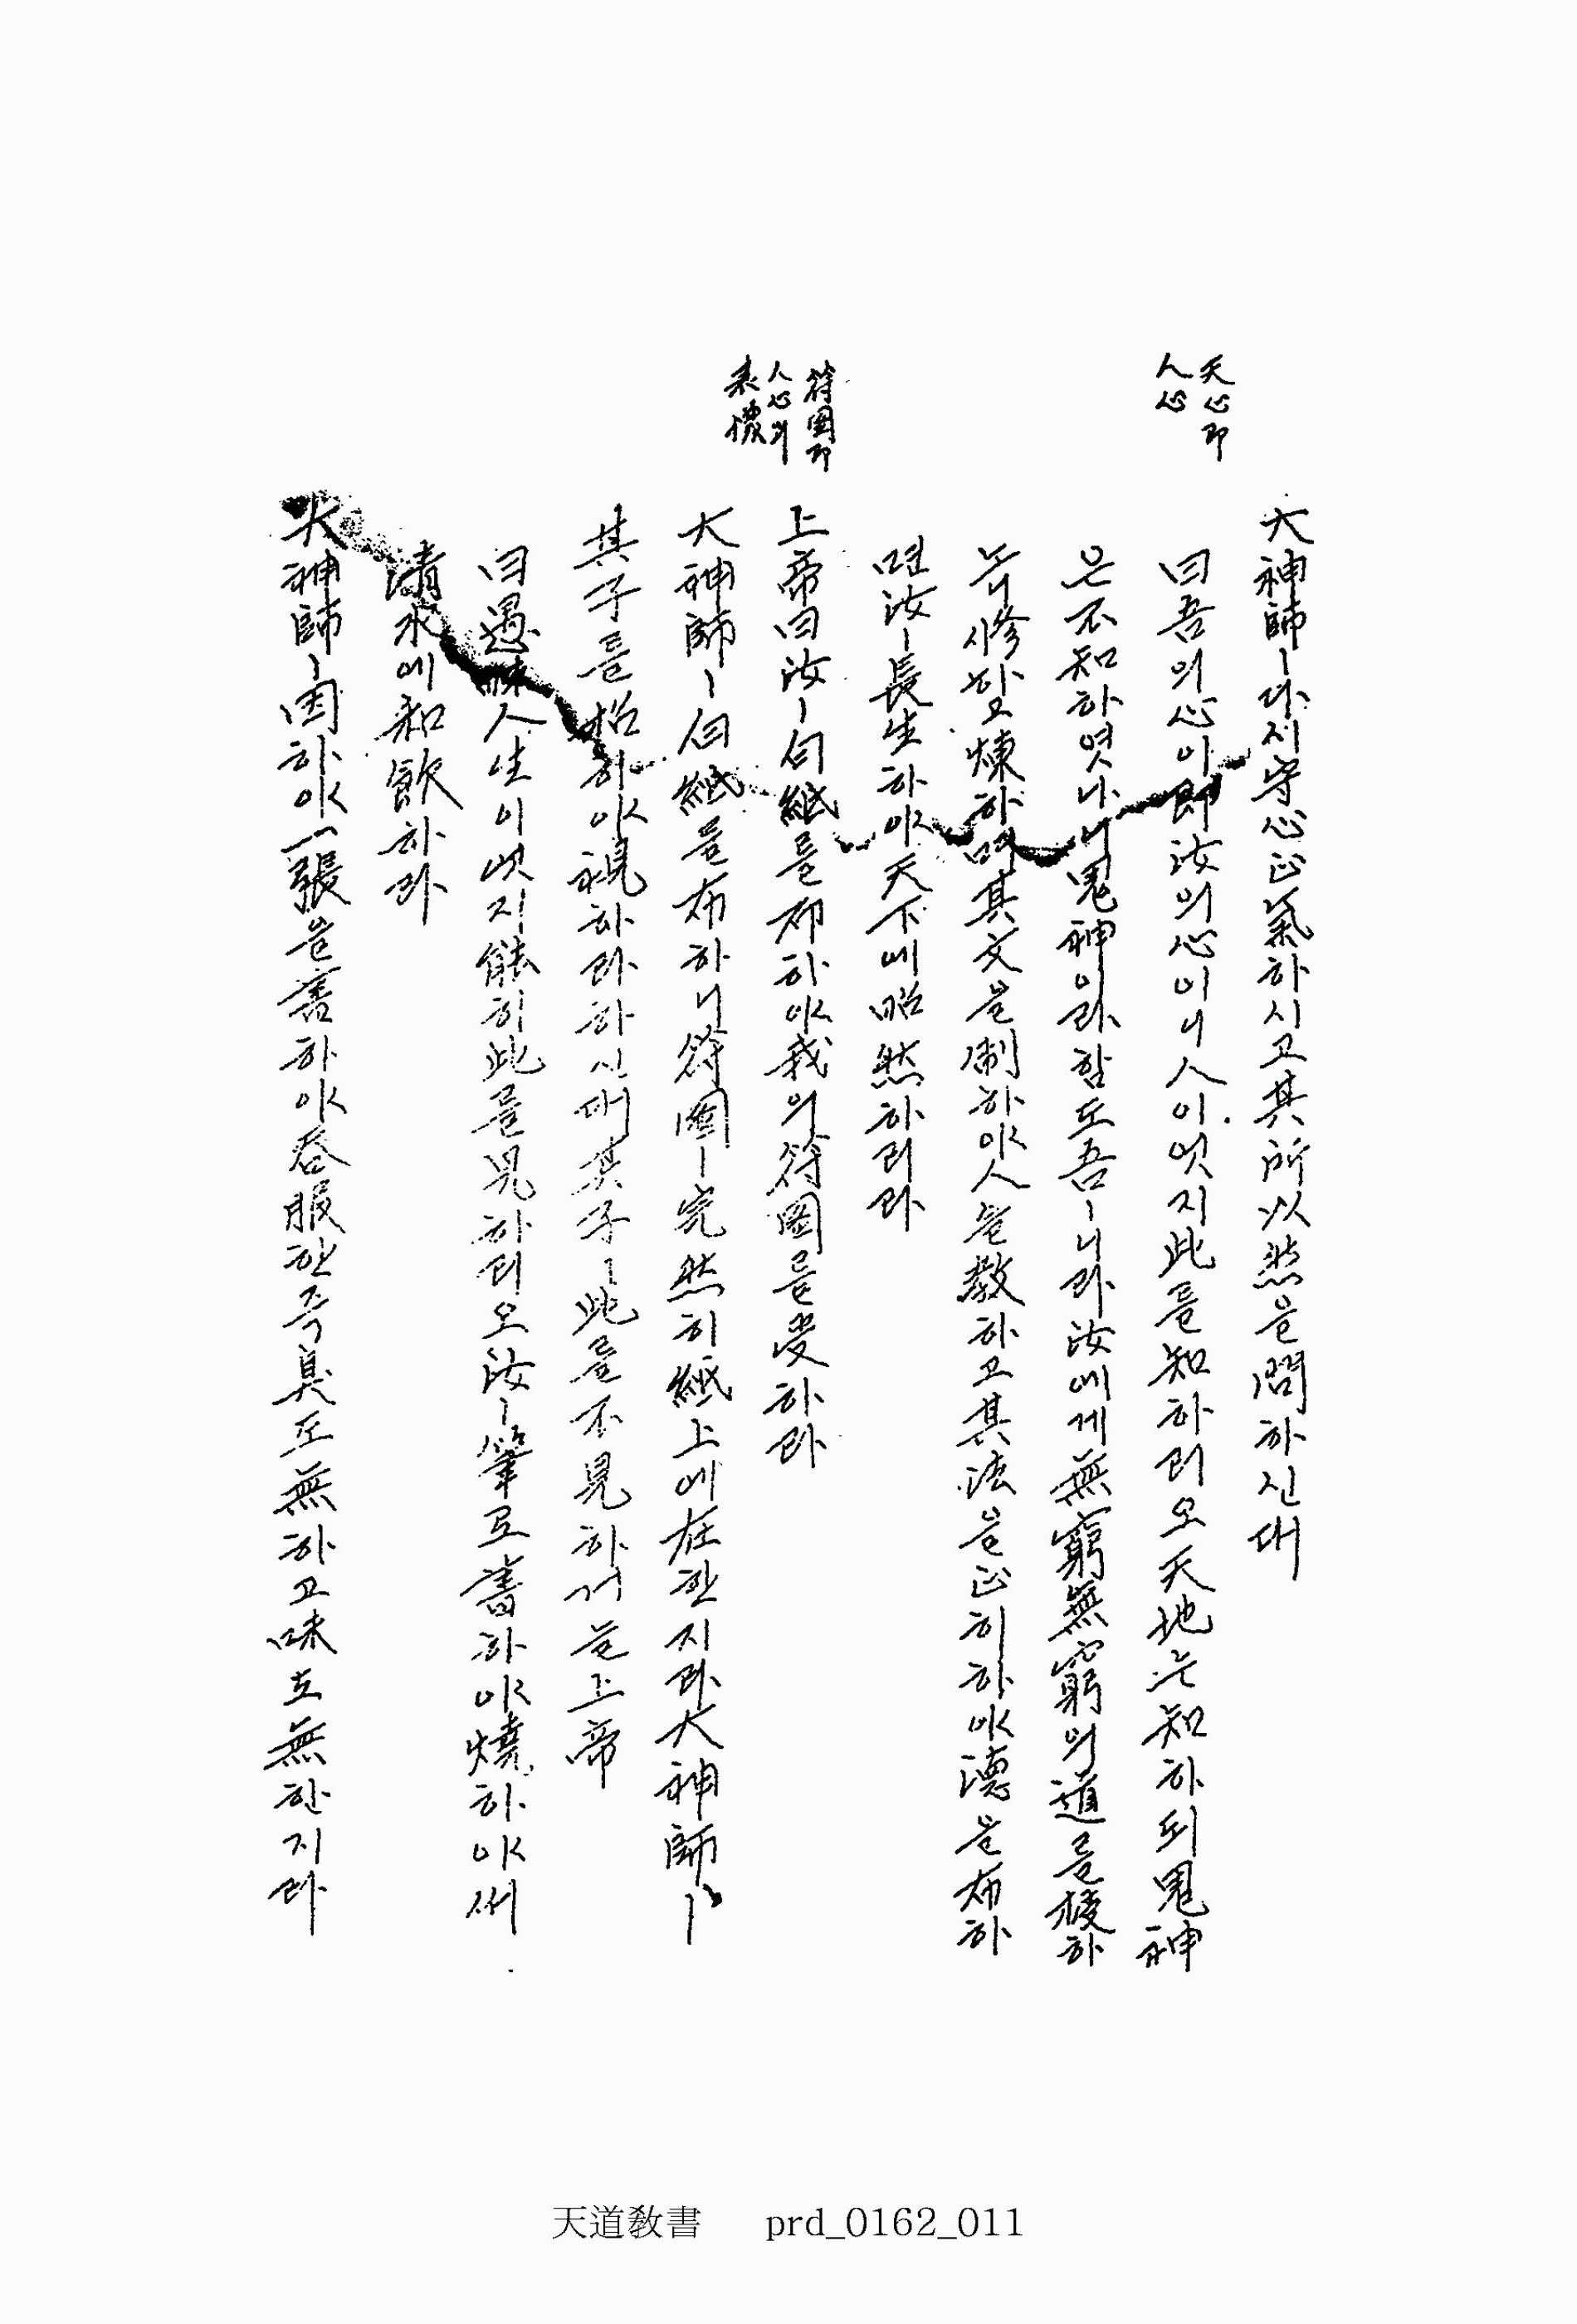 天心卽
人心
大神師ㅣ다시守心正氣하시고其所以然을問하신대
曰吾의心이卽汝의心이니人이엇지此를知하리오天地는知하되鬼神
은不知하엿나니鬼神이라함도吾ㅣ니라汝에게無窮無窮의道를授하
노니修하고煉하며其文을制하야人을敎하고其法을正히하야德을布하
면汝ㅣ長生하야天下에昭然하리라
符圖卽
人心의
表儀
上帝曰汝ㅣ白紙를却하야我의符圖를受하라
大神師ㅣ白紙를布하니符圖ㅣ完然히紙上에在한지라大神師ㅣ
其子를招하야視하라하신대其子ㅣ此를不見하거늘上帝
曰愚昧人生이엇지能히此를見하리오汝ㅣ筆로書하야燒하야써
淸水에和飮하라
大神師ㅣ因하야一張을書하야呑服한즉臭도無하고味도無한지라
天道敎書 prd_0162_011